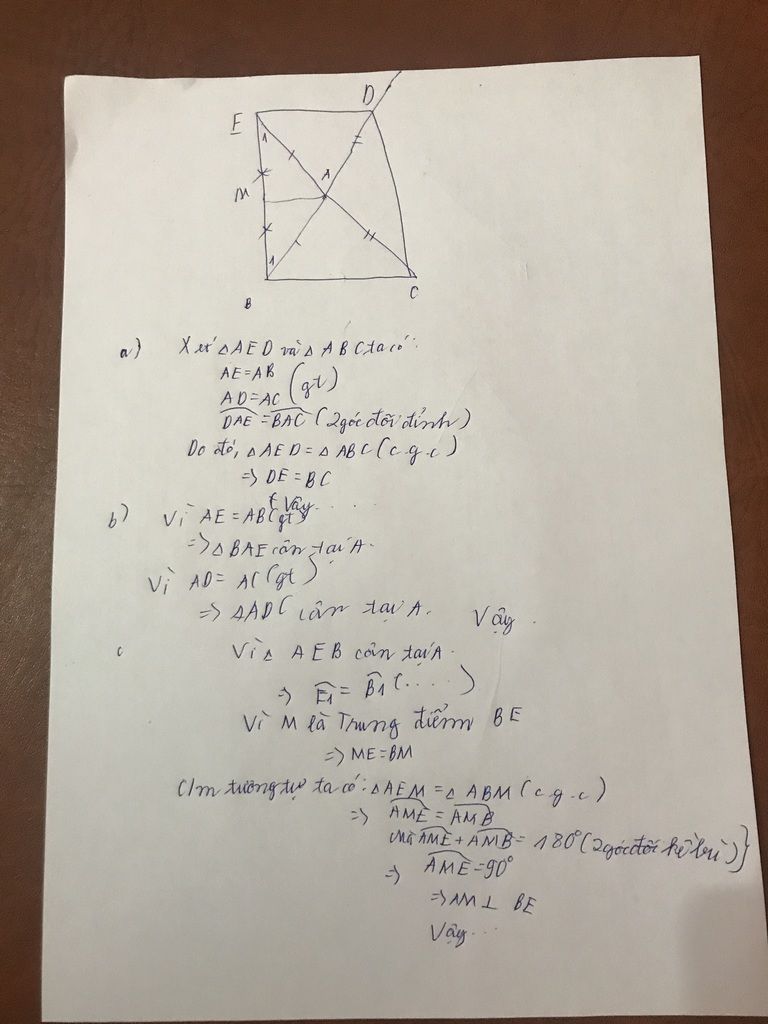 E
D
1
A
M
1
B
C
a) Xét △AED và △ABC ta có:
AE=AB
AD=AC (gt)
DAE = BAC (2 góc đối đỉnh)
Do đó, △AED = △ABC (c.g.c)
=> DE = BC
Vậy...
b) Vì AE = AB (gt)
=> △BAE cân tại A.
Vì AD = AC (gt)
=> △ADC cân tại A. Vậy.
c Vì △ AEB cân tại A.
=> E1 = B1 (....)
Vì M là Trung điểm BE
=> ME = BM
C/m tương tự ta có: △AEM = △ABM (c.g.c)
=> AME = AMB
Mà AME + AMB = 180° (2 góc đối kề bù)}
=> AME = 90°
=> AM ⊥ BE
Vậy...